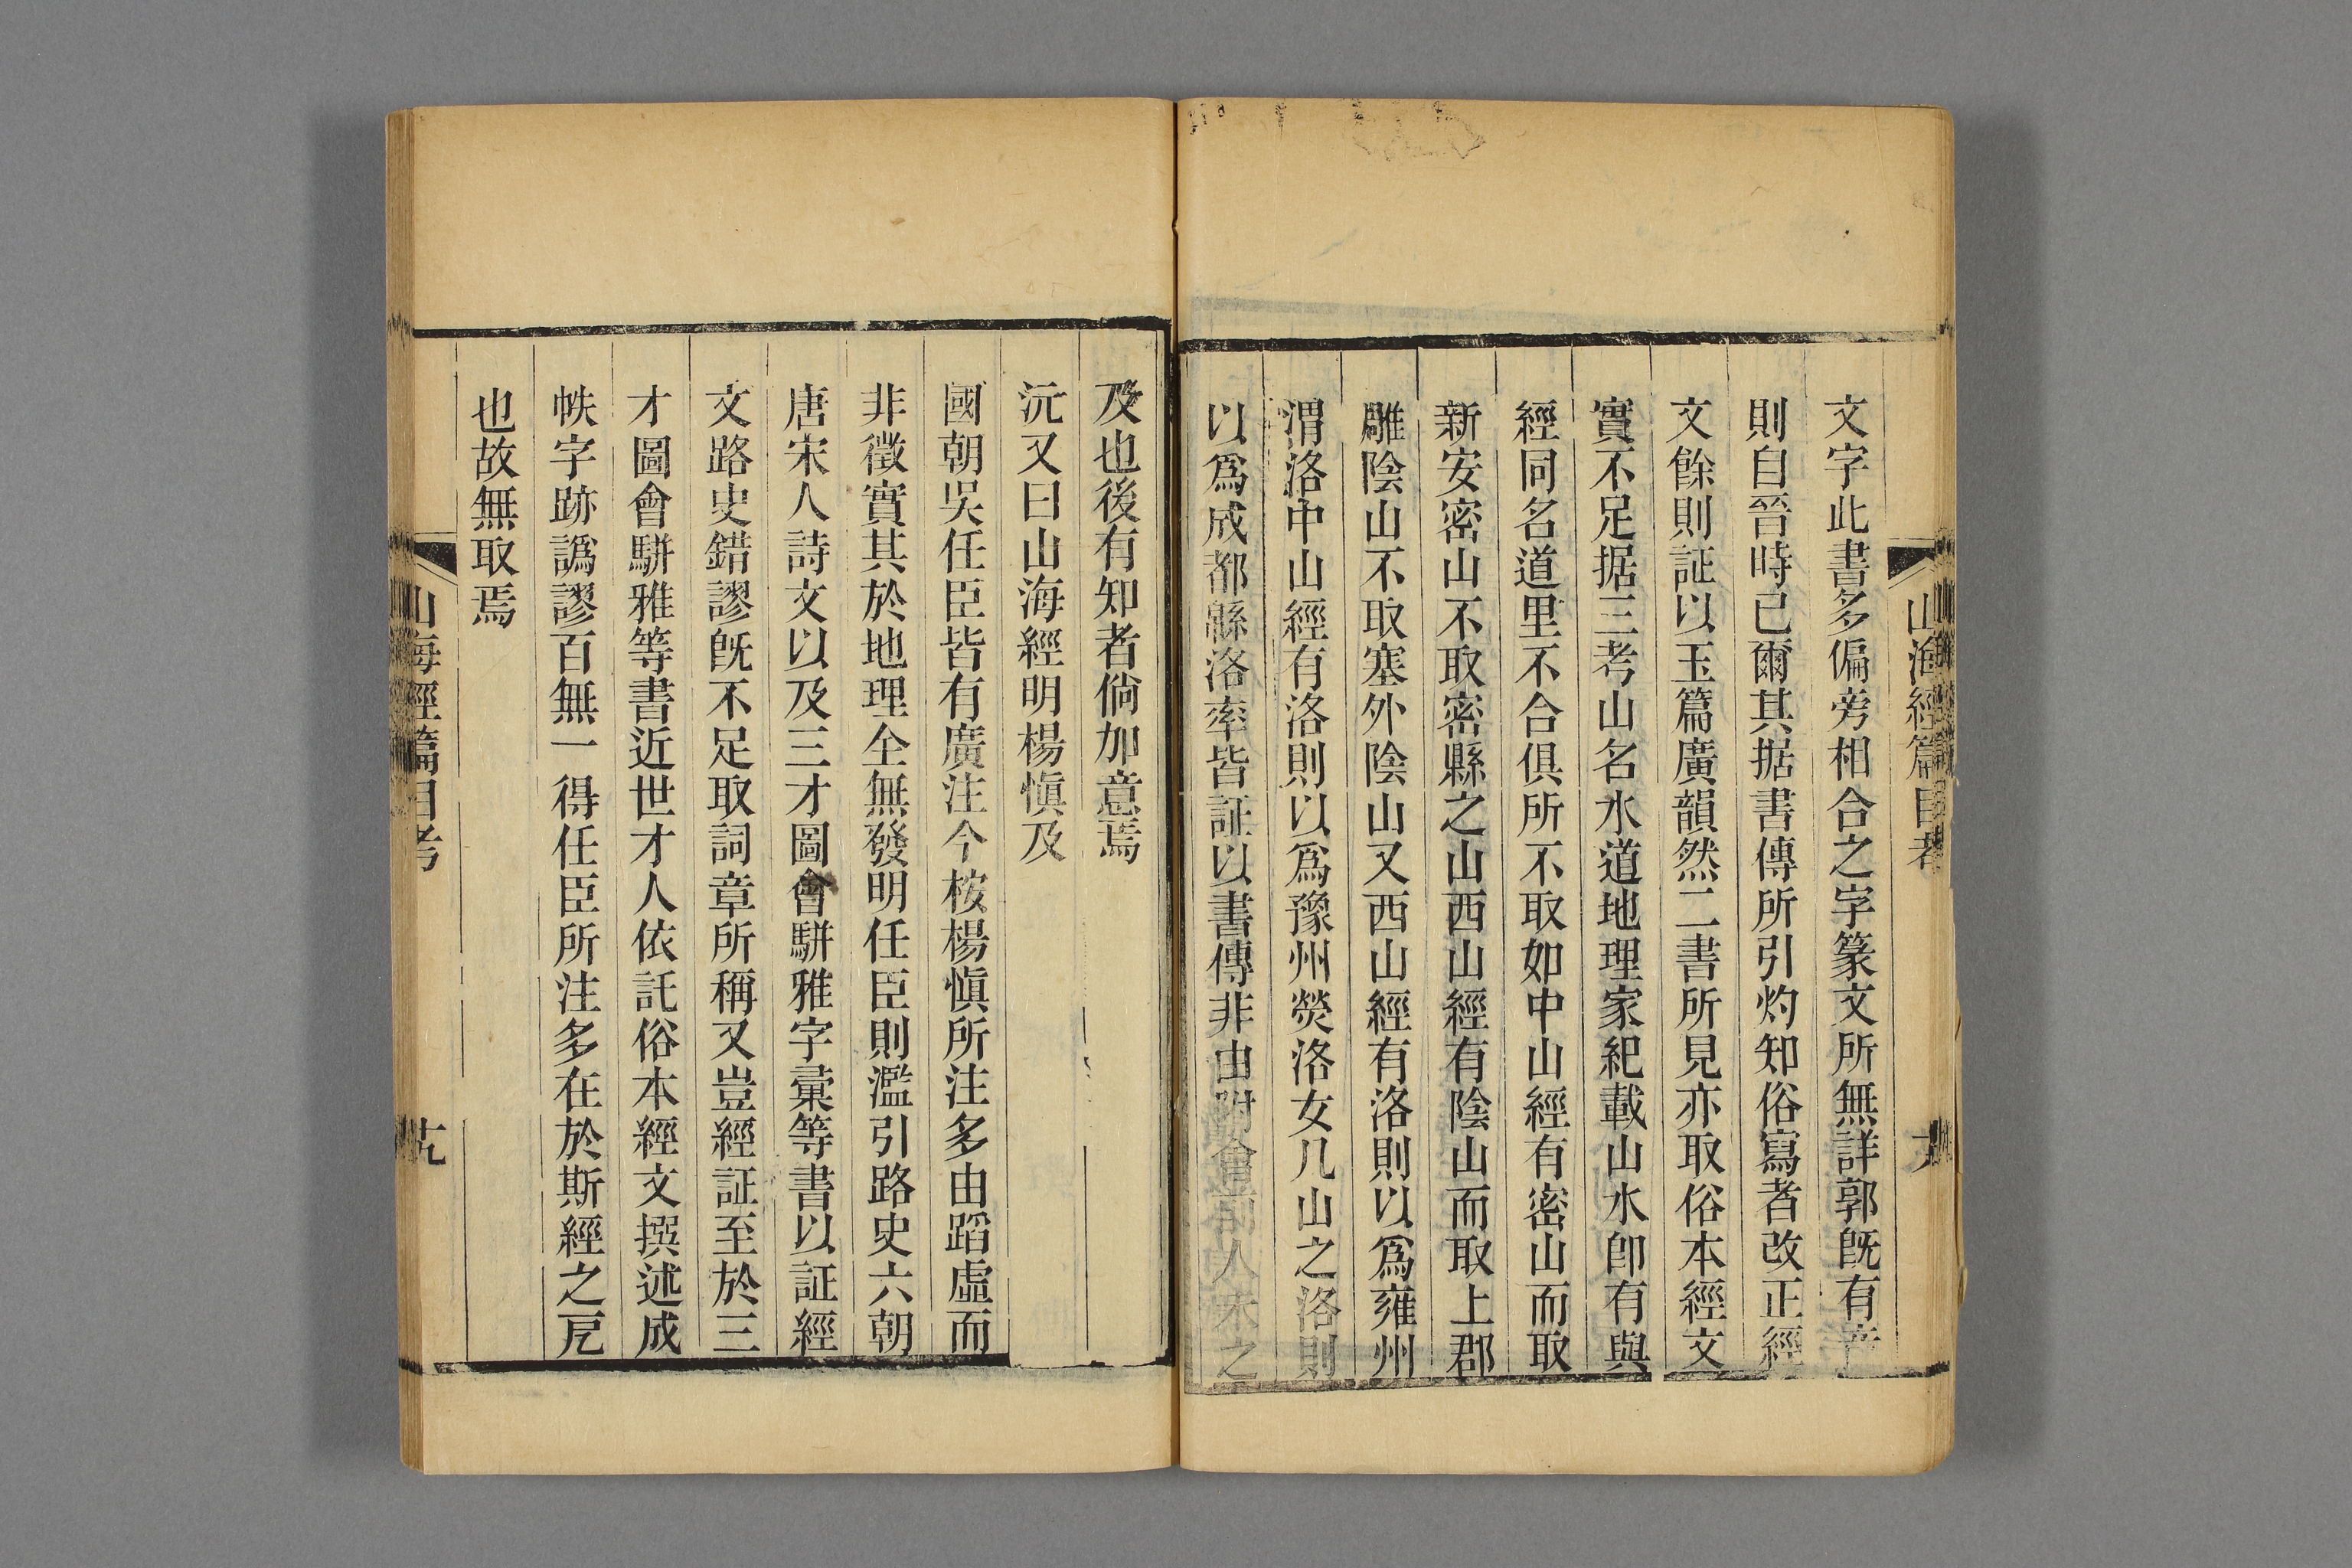 山海經篇目考
文字此書多偏旁相合之字篆文所無詳郭旣有音
則自晉時已爾其据書傳所引灼知俗寫者改正經
文餘則証以玉篇廣韻然二書所見亦取俗本經文
實不足据三考山名水道地理家紀載山水卽有與
經同名道里不合俱所不取如中山經有密山而取
新安密山不取密縣之山西山經有陰山而取上郡
雕陰山不取塞外陰山又西山經有洛則以爲雍州
渭洛中山經有洛則以爲豫州熒洛女几山之洛則
以爲成都緜洛率皆証以書傳非由附會前人未之
及也後有知者倘加意焉
沅又曰山海經明楊愼及
國朝吳任臣皆有廣注今桉楊愼所注多由蹈虛而
非徵實其於地理全無發明任臣則濫引路史六朝
唐宋人詩文以及三才圖會駢雅字彙等書以証經
文路史錯謬旣不足取詞章所稱又豈經証至於三
才圖會駢雅等書近世才人依託俗本經文撰述成
帙字跡譌謬百無一得任臣所注多在於斯經之厄
也故無取焉
山海經篇目考